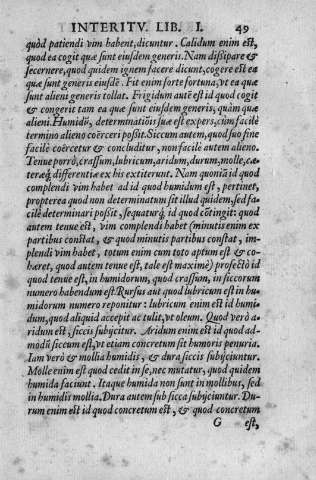 INTERITV. LIB. I. 49
quòd patiendi vim habent, dicuntur. Calidum enim est,
quod ea cogit quæ sunt eiusdem generis. Nam dißipare &
secernere, quod quidem ignem facere dicunt, cogere est ea
quæ sunt generis eiusdē. Fit enim forte fortuna, vt ea quæ
sunt alieni generis tollat. Frigidum autē est id quod cogit
& congerit tam ea quæ sunt eiusdem generis, quàm quæ
alieni. Humidū, determinatiōis suæ est expers, cùm facilè
termino alieno coërceri poßit. Siccum autem, quod suo fine
facilè coërcetur & concluditur, non facilè autem alieno.
Tenue porrò, crassum, lubricum, aridum, durum, molle, cæ
teræq; differentiæ ex his extiterunt. Nam quoniā id quod
complendi vim habet ad id quod humidum est, pertinet,
propterea quòd non determinatum sit illud quidem, sed fa-
cilè determinari poßit, sequaturq; id quod cōtingit: quod
autem tenue est, vim complendi habet (minutis enim ex
partibus constat, & quod minutis partibus constat, im-
plendi vim habet, totum enim cum toto aptum est & co-
hæret, quod autem tenue est, tale est maximè) profectò id
quod tenue est, in humidorum, quod crassum, in siccorum
numero habendum est. Rursus aut quod lubricum est in hu-
midorum numero reponitur: lubricum enim est id humi-
dum, quod aliquid accepit ac tulit, vt oleum. Quod verò a-
ridum est, siccis subijcitur. Aridum enim est id quod ad-
modū siccum est, vt etiam concretum sit humoris penuria.
Iam verò & mollia humidis, & dura siccis subijciuntur.
Molle enim est quod cedit in se, nec mutatur, quod quidem
humida faciunt. Itaque humida non sunt in mollibus, sed
in humidis mollia. Dura autem sub sicca subijciuntur. Du-
rum enim est id quod concretum est, & quod concretum
G est,